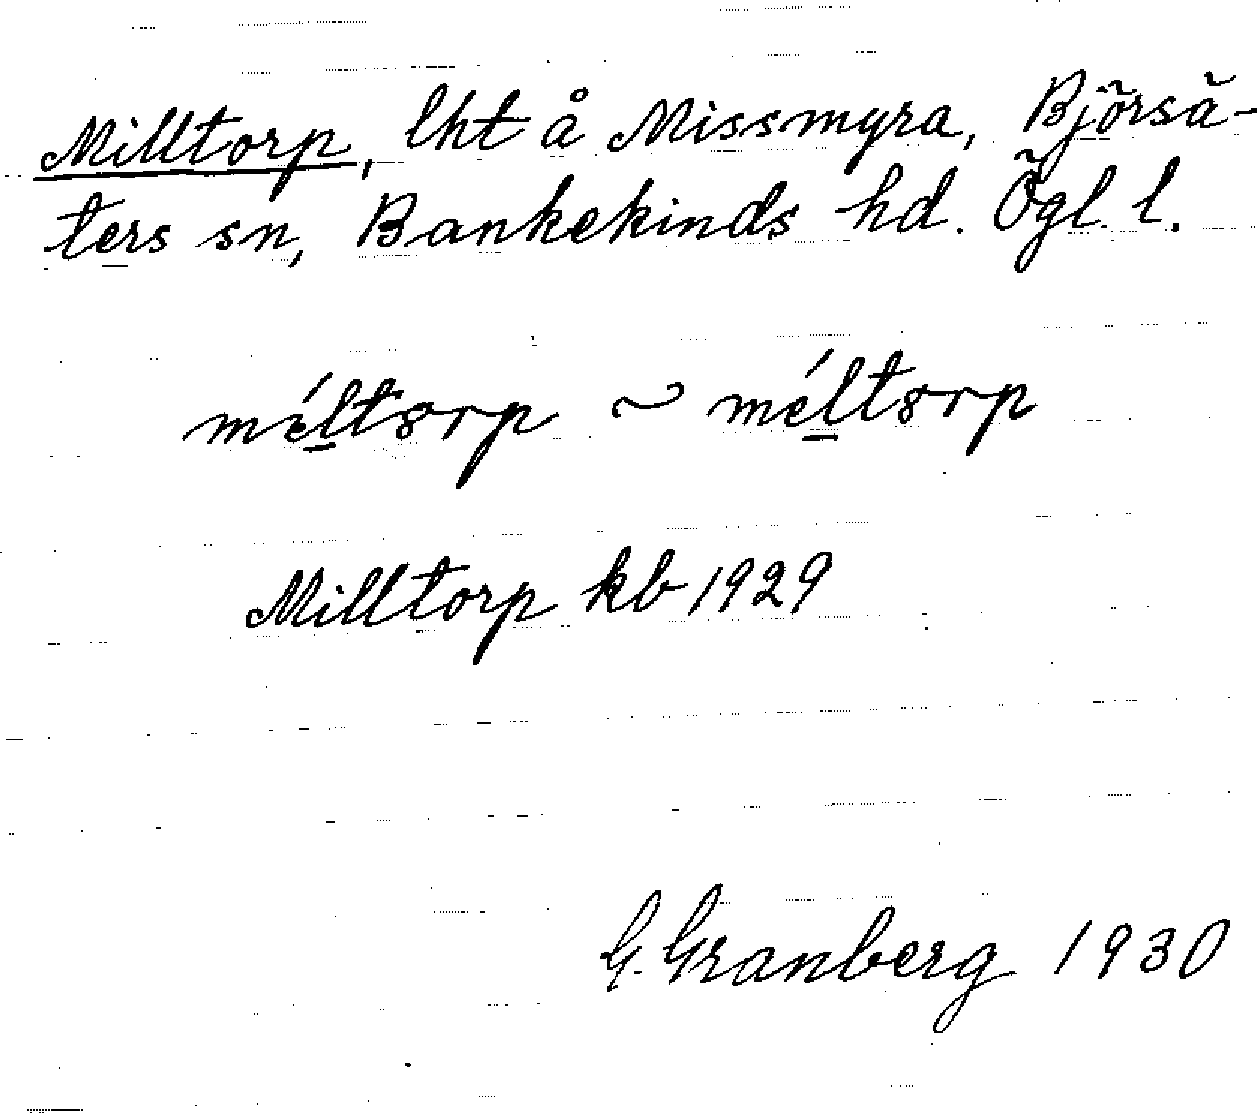 Milltorp, lht å Missmyra, Björsä-
ters sn, Bankekinds hd. Ögl. l.
méltorp ~ méltorp
Milltorp kb 1929
G. Granberg 1930